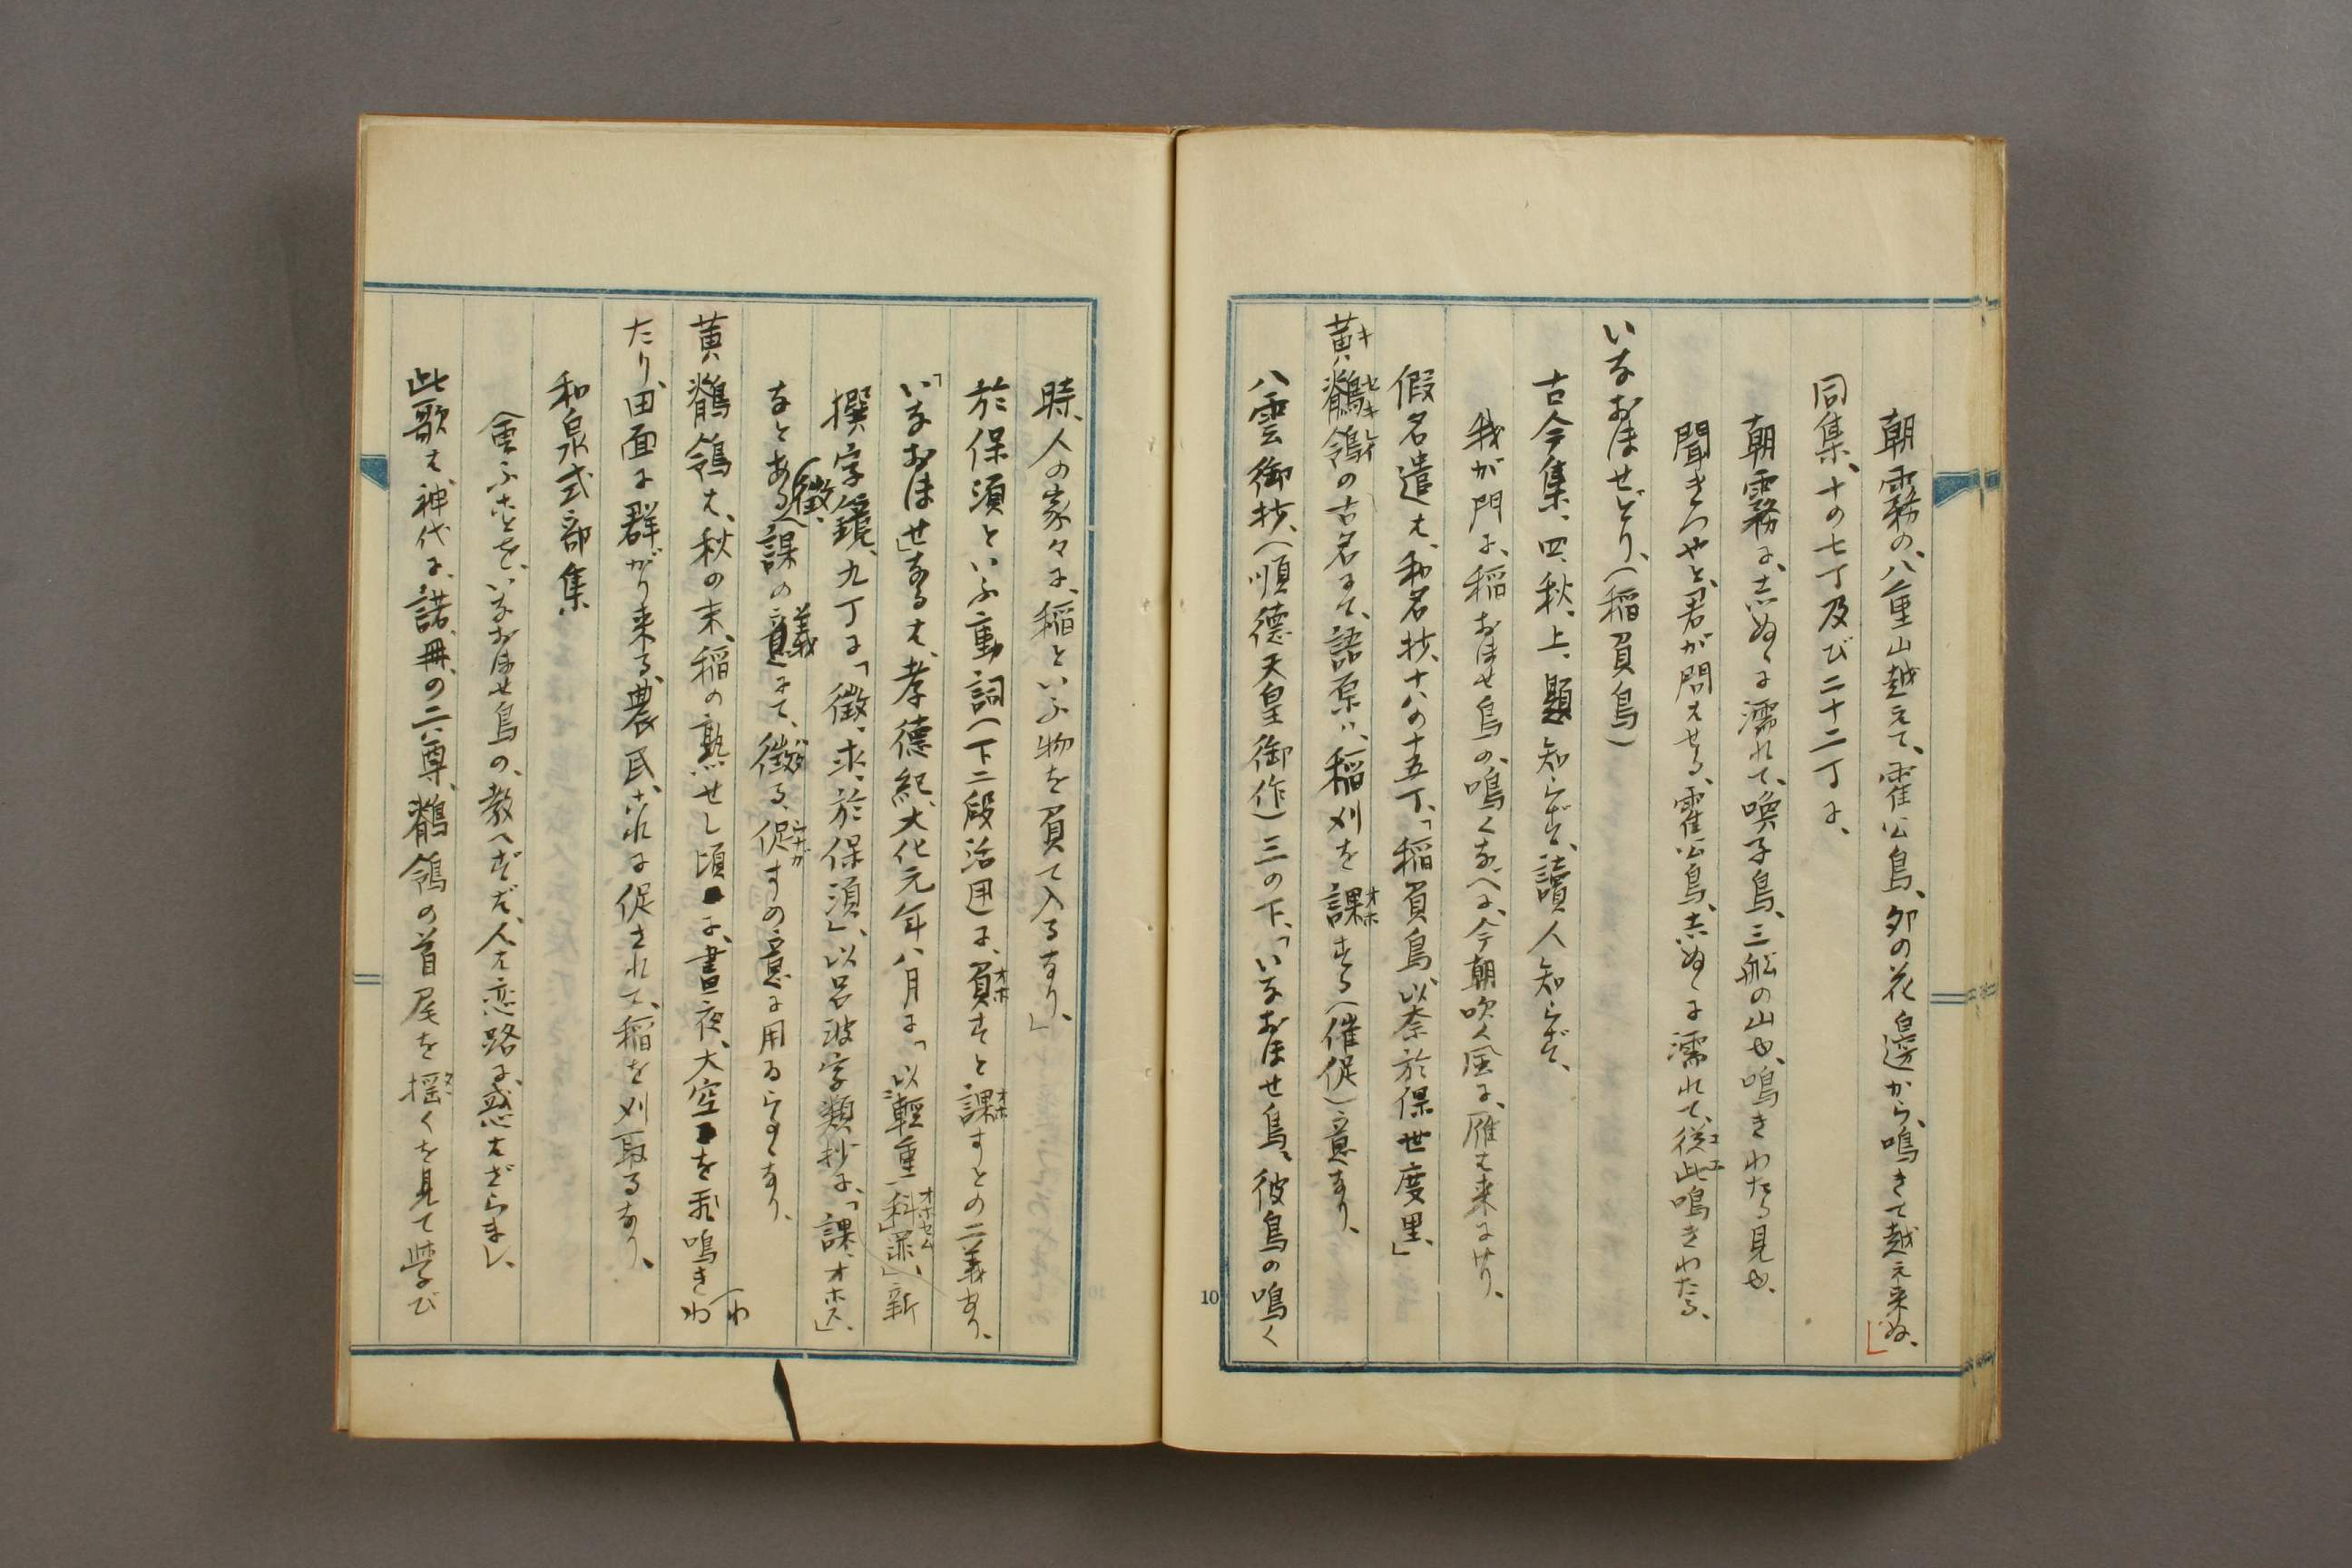 朝霧の、八重山越えて、霍公鳥、卯の花邊から、鳴きて越え来ぬ、」
同集、十の七丁及び二十二丁に、
朝霧に、志ぬゝに濡れて、喚子鳥、三船の山ゆ、鳴きわたる見ゆ、
聞きつやと、君が問はせる、霍公鳥、志ぬゝに濡れて、従此鳴きわたる、
いなおほせどり、(稲負鳥)
古今集、四、秋、上、題知らず、讀人知らず、
我が門に、稲おほせ鳥の、鳴くなべに、今朝吹く風に、雁は来にけり、
假名遣は、和名抄、十八の十五丁、「稲負鳥、以奈於保世度里、」
黄鶺鴒の古名にて、語原は、稲刈を課する(催促)意なり、
八雲御抄、(順徳天皇御作)三の下、「いなおほせ鳥、彼鳥の鳴く
10
時、人の家々に、稲といふ物を負て入るなり、」
於保須といふ動詞(下二段活用)に、負すと課すとの二義あり、
「いなおほせ」なるは、孝德紀、大化元年八月に「以輕重科罪、」新
撰字鏡、九丁に「徴、求、於保須」、以呂波字類抄に、「課、オホス」、
などとある、徴、課の義にて、徴る、促すの意に用ゐらるゝなり、
黄鶺鴒は、秋の末、稲の熟せし頃に、晝夜、大空を飛鳴きわ
たり、田面に群がり来る、農民、これに促されて、稲を刈取るなり、
和泉式部集
逢ふことを、いなおほせ鳥の、教へずば、人は恋路に惑はざらまし、
此歌は、神代に、諾冊の二尊、鶺鴒の首尾を搖くを見て学び